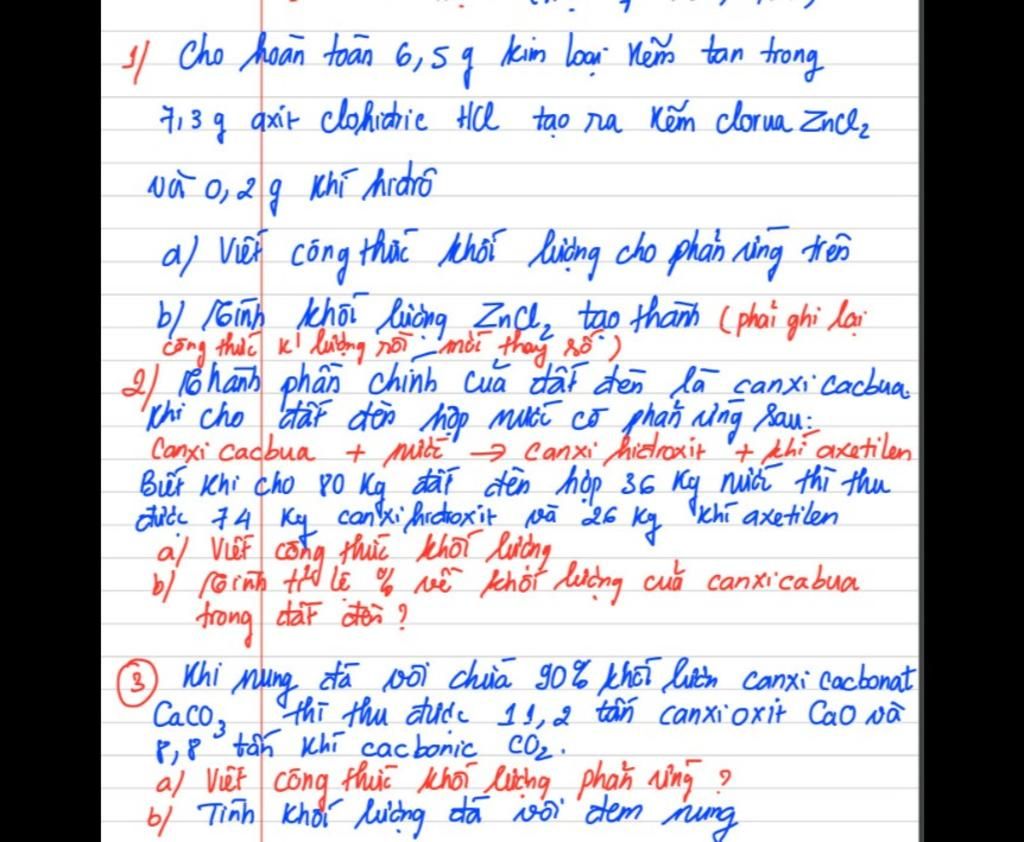 1/ Cho hoàn toàn 6,5 g kim loại Kẽm tan trong
7,3 g axit clohidric HCl tạo ra Kẽm clorua ZnCl₂
và 0,2 g khí hidrô
a) Viết công thức khối lượng cho phản ứng trên
b) Tính khối lượng ZnCl₂ tạo thành (phải ghi lại
công thức k' lượng rồi mới thay số)
2/ Thành phần chính của đất đèn là canxi cacbua.
Khi cho đất đèn hợp nước có phản ứng sau:
Canxi cacbua + nước → canxi hidroxit + khí axetilen
Biết khi cho 80 Kg đất đèn hợp 36 Kg nước thì thu
được 74 Kg canxi hidroxit và 26 Kg khí axetilen
a/ Viết công thức khối lượng
b/ Tính tỉ lệ % về khối lượng của canxicabua
trong đất đèn ?
3 Khi nung đá vôi chứa 90% khối lượn canxi cacbonat
CaCO₃ thì thu được 11,2 tấn canxioxit CaO và
8,8 tấn khí cacbonic CO₂.
a/ Viết công thức khối lượng phản ứng ?
b/ Tính khối lượng đá vôi đem nung